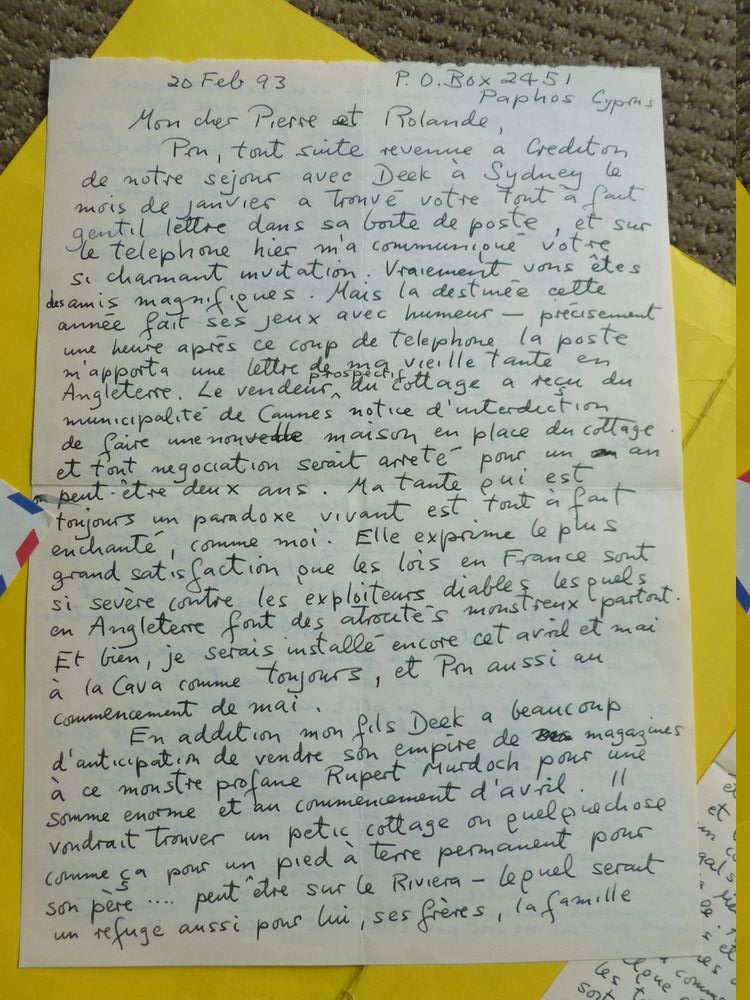 20 Feb 93 P.O.Box 2451
Paphos Cyprus
Mon cher Pierre et Rolande,
Prn, tout suite revenue a Crediton
de notre sejour avec Deek à Sydney le
mois de janvier a trouvé votre tout à fait
gentil lettre dans sa boite de poste, et sur
le telephone hier m'a communiqué votre
si charmant invitation. Vraiement vous êtes
des amis magnifiques. Mais la destinée cette
année fait ses jeux avec humeur — précisement
une heure après ce coup de telephone la poste
m'apporta une lettre de ma vieille tante en
Angleterre. Le vendeur prospectif du cottage a reçu du
municipalité de Cannes notice d'interdiction
de faire une nouvelle maison en place du cottage
et tout negociation serait arreté pour un an
ou peut-être deux ans. Ma tante qui est
toujours un paradoxe vivant est tout à fait
enchanté, comme moi. Elle exprime le plus
grand satisfaction que les lois en France sont
si sevère contre les exploiteurs diables lesquels
en Angleterre font des atrocités monstreux partout.
Et bien, je serais installé encore cet avril et mai
à la Cava comme toujours, et Prn aussi au
commencement de mai.
En addition mon fils Deek a beaucoup
d'anticipation de vendre son empire de magazines
à ce monstre profane Rupert Murdoch pour une
somme enorme et au commencement d'avril. Il
voudrait trouver un petit cottage ou quelquechose
comme ça pour un pied à terre permanent pour
son père .... peut être sur le Riviera — lequel serait
un refuge aussi pour lui, ses frères, la famille